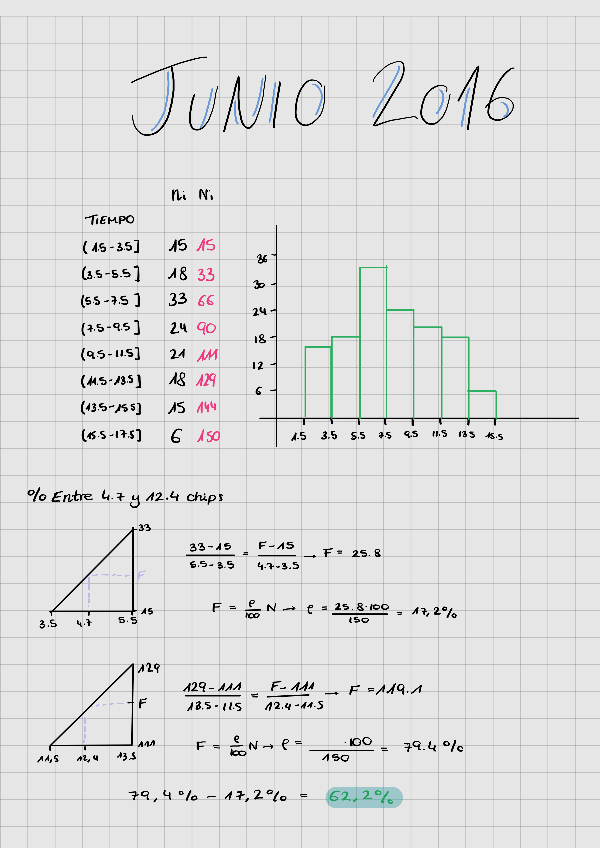 JUNIO 2016
ni Ni
TIEMPO
(1.5-3.5] 15 15
(3.5-5.5] 18 33
(5.5-7.5] 33 66
(7.5-9.5] 24 90
(9.5-11.5] 21 111
(11.5-13.5] 18 129
(13.5-15.5] 15 144
(15.5-17.5] 6 150
36
30
24
18
12
6
1.5 3.5 5.5 7.5 9.5 11.5 13.5 15.5
% Entre 4.7 y 12.4 chips
33
F
15
3.5 4.7 5.5
33-15 / 5.5-3.5 = F-15 / 4.7-3.5 → F = 25.8
F = e/100 N → e = 25.8·100 / 150 = 17,2%
129
F
111
11,5 12,4 13.5
129-111 / 13.5-11.5 = F-111 / 12.4-11.5 → F = 119.1
F = e/100 N → e = ·100 / 150 = 79.4%
79,4% - 17,2% = 62,2%